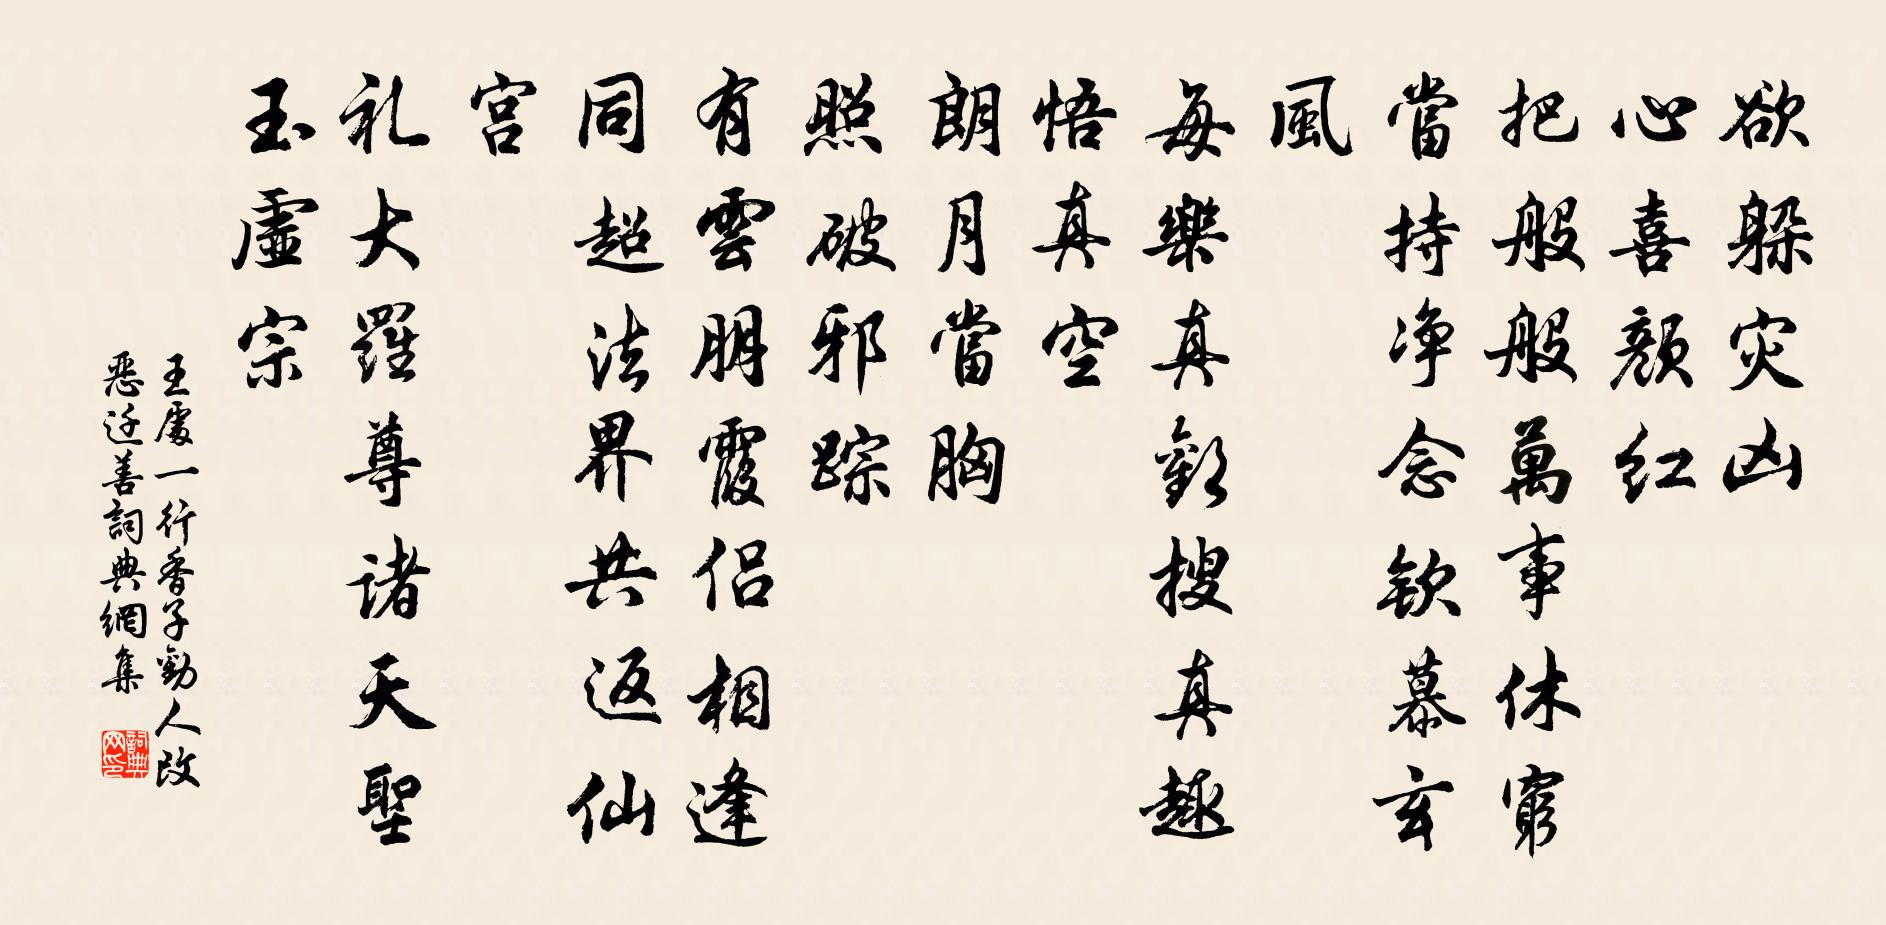 欲躲灾凶
心喜顔红
把般般萬事休窮
當持净念欽慕玄
風
每樂真歡搜真趣
悟真空
朗月當胸
照破邪踪
有雲朋霞侶相逢
同超法界共返仙
宫
礼大羅尊諸天聖
玉虛宗
王處一行香子勸人改
惡迁善詞典網集
詞典網印